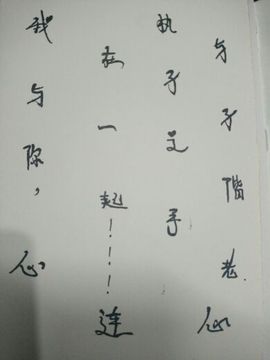 我与你，心
在一起！！！连
执子之手
与子偕老.心